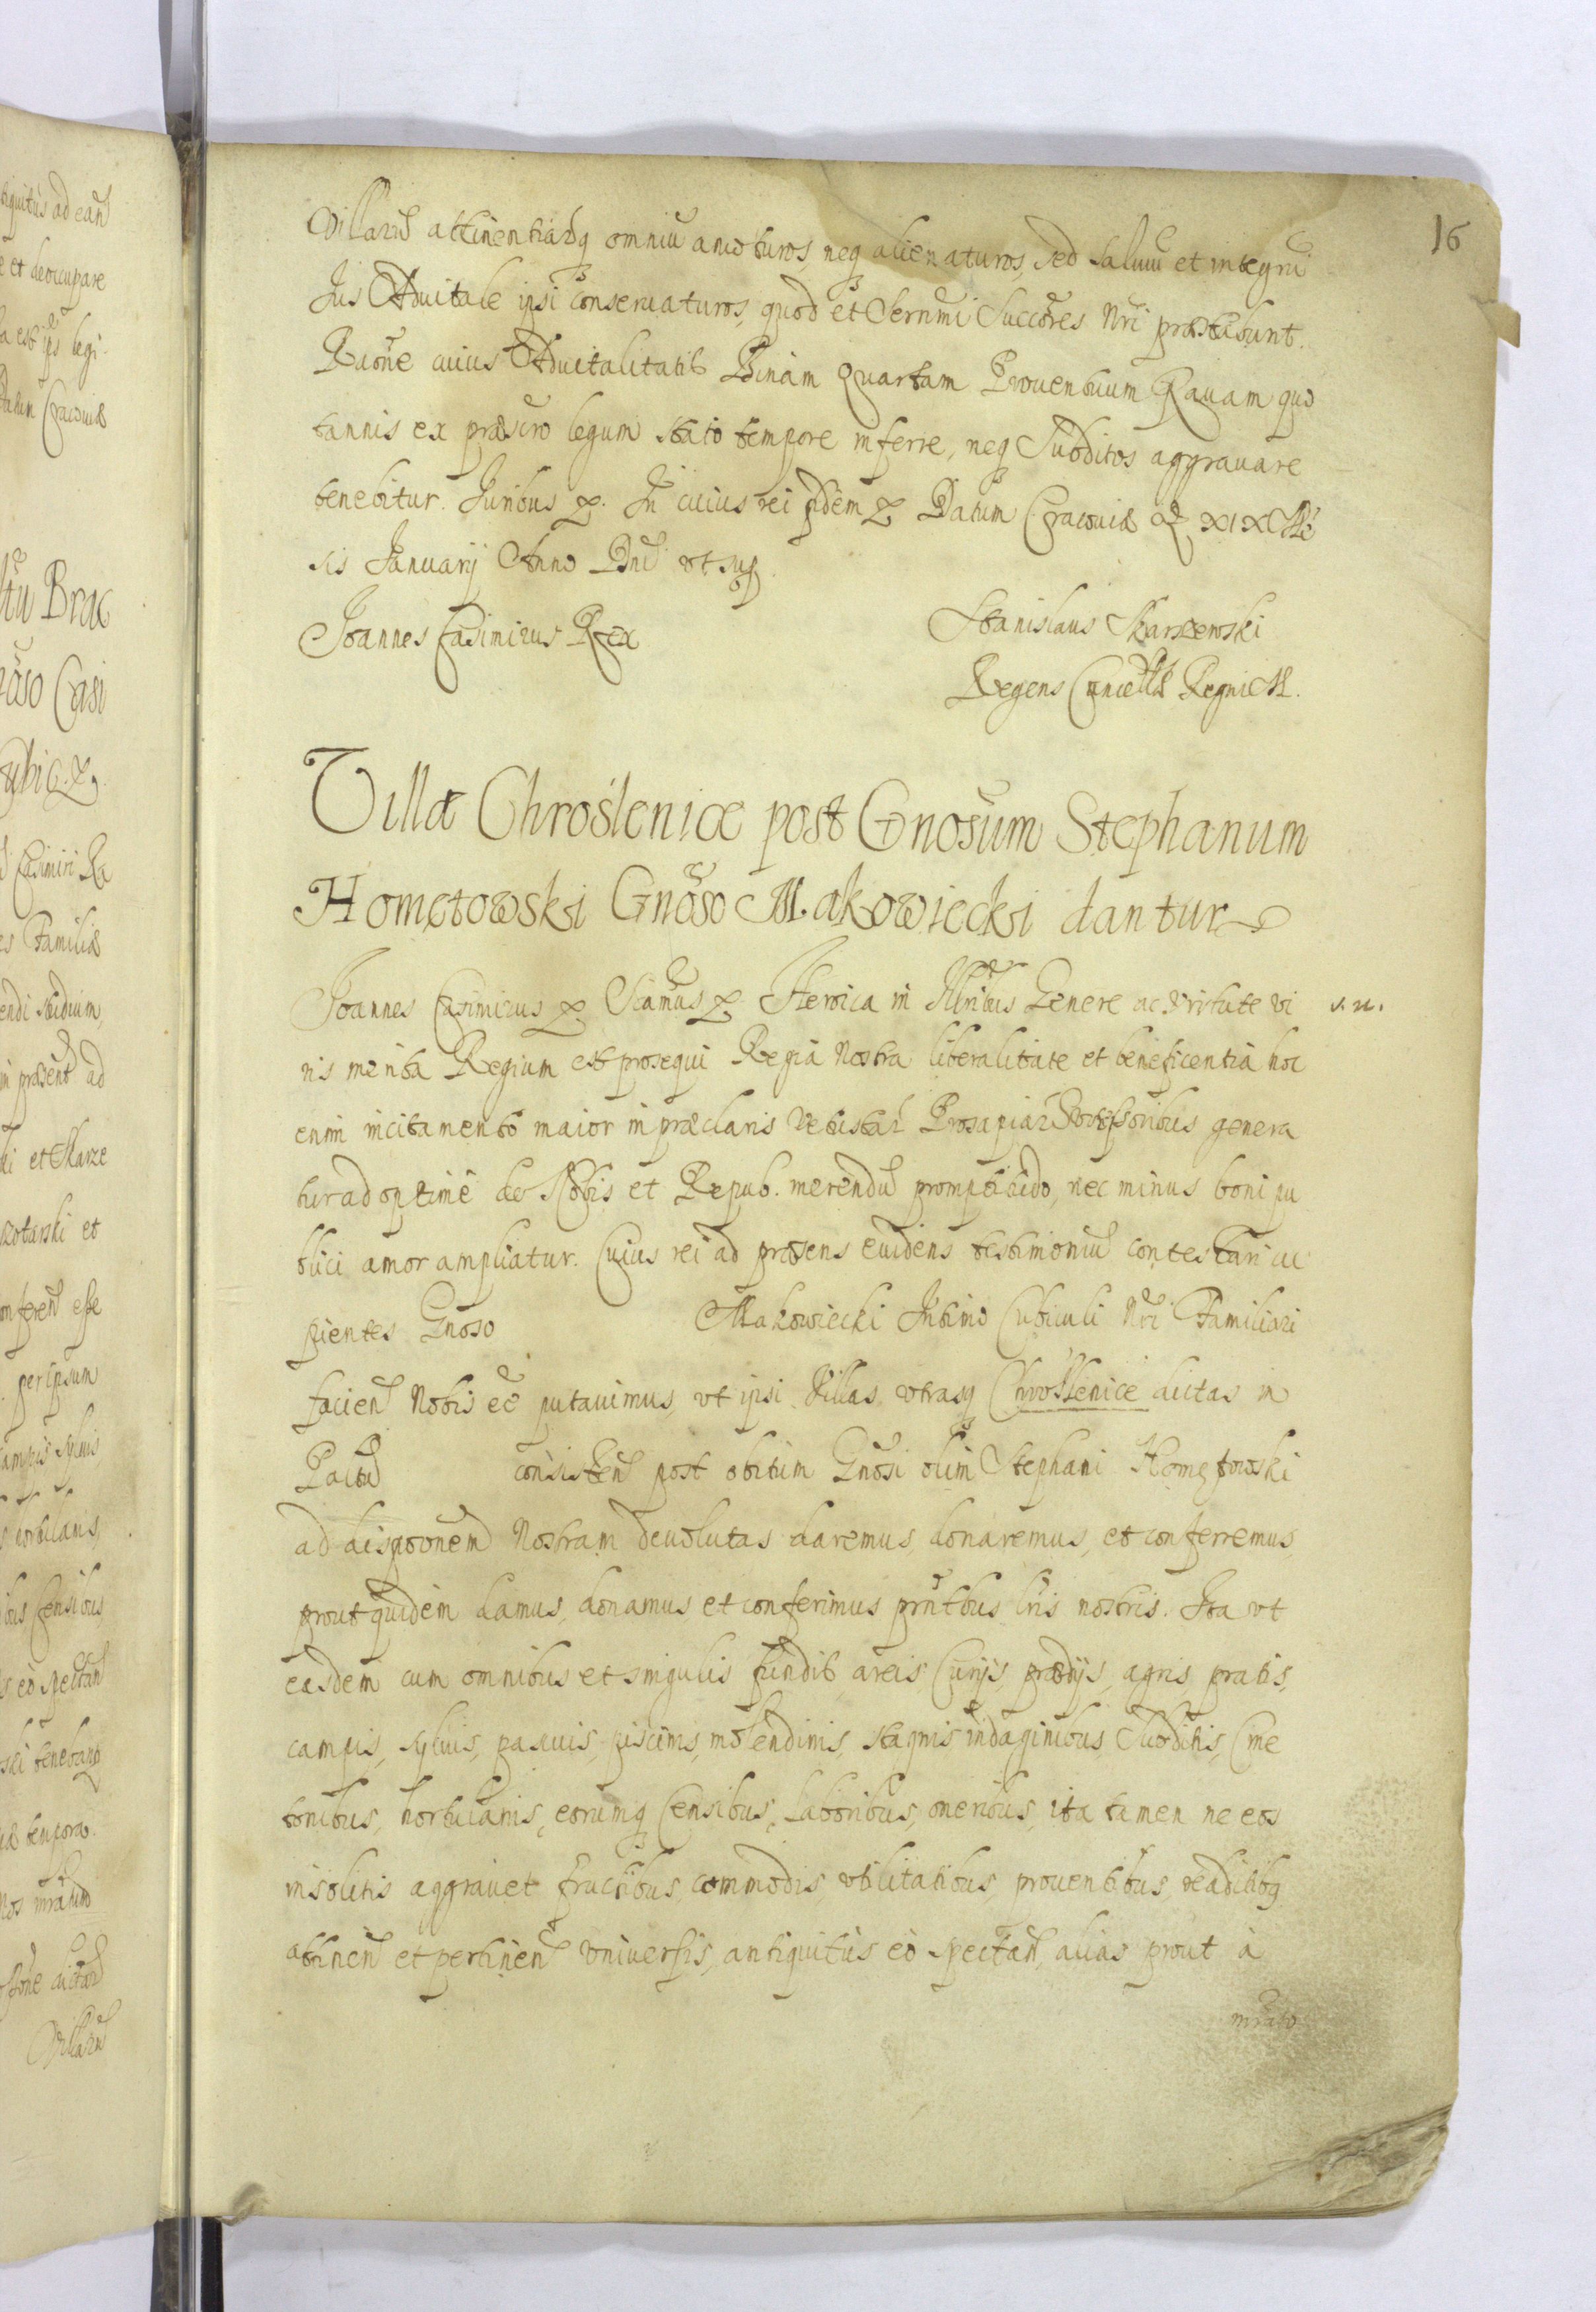 16
Villarũ attinentiarũq omniũ amoturos, neq alienaturos, sed saluũ et integrũ
Jus Aduitale ipsi conseruaturos, quod et Sernmi Succores Nri præstabunt.
Raone cuius Aduitalitatis Binam Quartam Prouentuum Rauam quo
tannis ex præscro legum stato tempore inferre, neq Subditos aggrauare
tenebitur. Juribus &. In cuius rei fidem & Datum Cracouiæ XIX Mẽ
sis Januarij Anno Dni ut sup
Joannes Casimirus Rex
Stanislaus Skarszewski
Regens Cancellæ Regni M.
Villæ Chroślenice post Gnosum Stephanum
Hometowski Gnoso Makowiecki dantur
Joannes Casimirus & Sig̃mus & Heroica in Illribus Genere ac Virtute vi
s. n.
ris merita Regium est prosequi Regia Nostra liberalitate et beneficentia hoc
enim incitamento maior in præclaris Vetustar Prosapiar genera
tur ad optimè de Nobis et Repub. merendũ promptitudo, nec minus boni pu
blici amor ampliatur. Cuius rei ad præsens euidens testimoniũ contestari cu
pientes Gnoso Makowiecki Intimo Cubiculi Nri Familiari
facien Nobis eẽ putauimus, vt ipsi Villas vtrasq Chroślenice dictas in
Palttũ consisten post obitum Gnosi olim Stephani Hometowski
ad disponem Nostram deuolutas daremus, donaremus, et conferremus,
prout quidem damus, donamus et conferimus pñtbus lris nostris. Ita vt
easdem cum omnibus et singulis fundis, areis, Curijs, prædijs, agris, pratis,
campis, syluis, pascuis, piscinis, molendinis, stagnis, indaginibus, Subditis, Cme
tonibus, hortulanis, eorumq Censibus, laboribus, oneribus, ita tamen ne eos
insolitis aggrauet, fructibus, commodis, vtilitatibus, prouentibus, redditibq
attinen et pertinen vniuersis, antiquitùs eò spectan, alias prout à
mrato